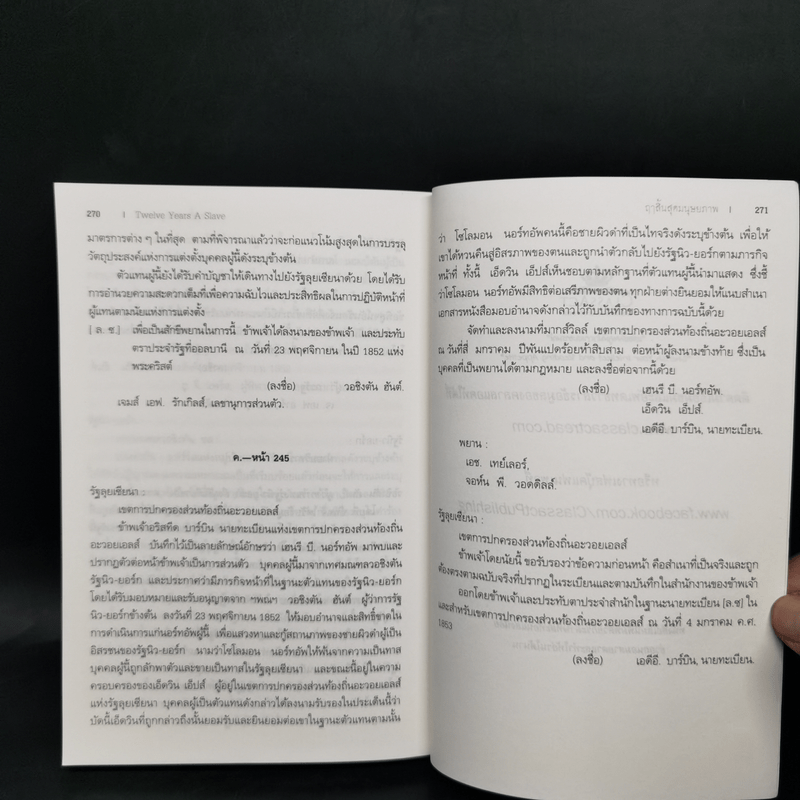 270 | Twelve Years A Slave
มาตรการต่าง ๆ ในที่สุด ตามที่พิจารณาแล้วว่าจะก่อแนวโน้มสูงสุดในการบรรลุ
วัตถุประสงค์แห่งการแต่งตั้งบุคคลผู้นี้ดังระบุข้างต้น
ตัวแทนผู้นี้ยังได้รับคำบัญชาให้เดินทางไปยังรัฐลุยเซียนาด้วย โดยได้รับ
การอำนวยความสะดวกเต็มที่เพื่อความฉับไวและประสิทธิผลในการปฏิบัติหน้าที่
ผู้แทนตามนัยแห่งการแต่งตั้ง
[ล. ซ.] เพื่อเป็นสักขีพยานในการนี้ ข้าพเจ้าได้ลงนามของข้าพเจ้า และประทับ
ตราประจำรัฐที่ออลบานี ณ วันที่ 23 พฤศจิกายน ในปี 1852 แห่ง
พระคริสต์
(ลงชื่อ) วอชิงตัน ฮันต์.
เจมส์ เอฟ. รักเกิลส์, เลขานุการส่วนตัว.
ค.—หน้า 245
รัฐลุยเซียนา :
เขตการปกครองส่วนท้องถิ่นอะวอยเอลส์
ข้าพเจ้าอริสทีด บาร์บิน นายทะเบียนแห่งเขตการปกครองส่วนท้องถิ่น
อะวอยเอลส์ บันทึกไว้เป็นลายลักษณ์อักษรว่า เฮนรี บี. นอร์ทอัพ มาพบและ
ปรากฏตัวต่อหน้าข้าพเจ้าเป็นการส่วนตัว บุคคลผู้นี้มาจากเทศมณฑลวอชิงตัน
รัฐนิว-ยอร์ก และประกาศว่ามีภารกิจหน้าที่ในฐานะตัวแทนของรัฐนิว-ยอร์ก
โดยได้รับมอบหมายและรับอนุญาตจาก ฯพณฯ วอชิงตัน ฮันต์ ผู้ว่าการรัฐ
นิว-ยอร์กข้างต้น ลงวันที่ 23 พฤศจิกายน 1852 ให้มอบอำนาจและสิทธิ์ขาดใน
การดำเนินการแก่นอร์ทอัพผู้นี้ เพื่อแสวงหาและกู้สถานภาพของชายผิวดำผู้เป็น
อิสรชนของรัฐนิว-ยอร์ก นามว่าโซโลมอน นอร์ทอัพให้พ้นจากความเป็นทาส
บุคคลผู้นี้ถูกลักพาตัวและขายเป็นทาสในรัฐลุยเซียนา และขณะนี้อยู่ในความ
ครอบครองของเอ็ดวิน เอ็ปส์ ผู้อยู่ในเขตการปกครองส่วนท้องถิ่นอะวอยเอลส์
แห่งรัฐลุยเซียนา บุคคลผู้เป็นตัวแทนดังกล่าวได้ลงนามรับรองในประเด็นนี้ว่า
บัดนี้เอ็ดวินที่ถูกกล่าวถึงนั้นยอมรับและยินยอมต่อเขาในฐานะตัวแทนตามนั้น
| 271
ว่า โซโลมอน นอร์ทอัพคนนี้คือชายผิวดำที่เป็นไทจริงดังระบุข้างต้น เพื่อให้
เขาได้หวนคืนสู่อิสรภาพของตนและถูกนำตัวกลับไปยังรัฐนิว-ยอร์กตามภารกิจ
หน้าที่ ทั้งนี้ เอ็ดวิน เอ็ปส์เห็นชอบตามหลักฐานที่ตัวแทนผู้นี้นำมาแสดง ซึ่งชี้
ว่าโซโลมอน นอร์ทอัพมีสิทธิต่อเสรีภาพของตน ทุกฝ่ายต่างยินยอมให้แนบสำเนา
เอกสารหนังสือมอบอำนาจดังกล่าวไว้กับบันทึกของทางการฉบับนี้ด้วย
จัดทำและลงนามที่มากส์วิลล์ เขตการปกครองส่วนท้องถิ่นอะวอยเอลส์
ณ วันที่สี่ มกราคม ปีพันแปดร้อยห้าสิบสาม ต่อหน้าผู้ลงนามข้างท้าย ซึ่งเป็น
บุคคลที่เป็นพยานได้ตามกฎหมาย และลงชื่อต่อจากนี้ด้วย
(ลงชื่อ) เฮนรี บี. นอร์ทอัพ.
เอ็ดวิน เอ็ปส์.
เอดีอี. บาร์บิน, นายทะเบียน.
พยาน :
เอช. เทย์เลอร์,
จอห์น พี. วอดดิลล์.
รัฐลุยเซียนา :
เขตการปกครองส่วนท้องถิ่นอะวอยเอลส์
ข้าพเจ้าโดยนัยนี้ ขอรับรองว่าข้อความก่อนหน้า คือสำเนาที่เป็นจริงและถูก
ต้องตรงตามฉบับจริงที่ปรากฏในระเบียนและตามบันทึกในสำนักงานของข้าพเจ้า
ออกโดยข้าพเจ้าและประทับตราประจำสำนักในฐานะนายทะเบียน [ล.ซ] ใน
และสำหรับเขตการปกครองส่วนท้องถิ่นอะวอยเอลส์ ณ วันที่ 4 มกราคม ค.ศ.
1853
(ลงชื่อ) เอดีอี. บาร์บิน, นายทะเบียน.